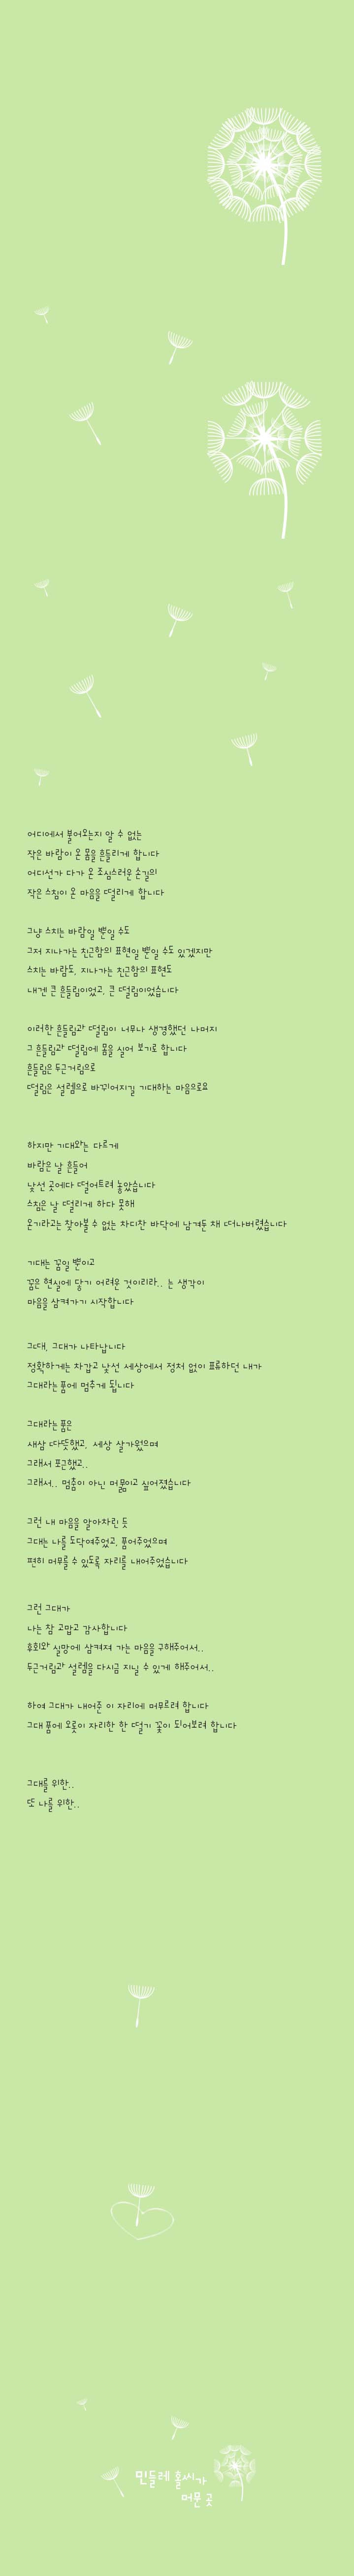 어디에서 불어오는지 알 수 없는
작은 바람이 온 몸을 흔들리게 합니다
어디선가 다가 온 조심스러운 손길의
작은 스침이 온 마음을 떨리게 합니다
그냥 스치는 바람일 뿐일 수도
그저 지나가는 친근함의 표현일 뿐일 수도 있겠지만
스치는 바람도, 지나가는 친근함의 표현도
내겐 큰 흔들림이었고, 큰 떨림이었습니다
이러한 흔들림과 떨림이 너무나 생경했던 나머지
그 흔들림과 떨림에 몸을 실어 보기로 합니다
흔들림은 두근거림으로
떨림은 설렘으로 바뀌어지길 기대하는 마음으로요
하지만 기대와는 다르게
바람은 날 흔들어
낯선 곳에다 떨어트려 놓았습니다
스침은 날 떨리게 하다 못해
온기라고는 찾아볼 수 없는 차디찬 바닥에 남겨둔 채 떠나버렸습니다
기대는 꿈일 뿐이고
꿈은 현실에 닿기 어려운 것이리라.. 는 생각이
마음을 삼켜가기 시작합니다
그때, 그대가 나타납니다
정확하게는 차갑고 낯선 세상에서 정처 없이 표류하던 내가
그대라는 품에 멈추게 됩니다
그대라는 품은
새삼 따뜻했고, 세상 살가웠으며
그래서 포근했고..
그래서.. 멈춤이 아닌 머묾이고 싶어졌습니다
그런 내 마음을 알아차린 듯
그대는 나를 도닥여주었고, 품어주었으며
편히 머무를 수 있도록 자리를 내어주었습니다
그런 그대가
나는 참 고맙고 감사합니다
후회와 실망에 삼켜져 가는 마음을 구해주어서..
두근거림과 설렘을 다시금 지닐 수 있게 해주어서..
하여 그대가 내어준 이 자리에 머무르려 합니다
그대 품에 오롯이 자리한 한 떨기 꽃이 되어보려 합니다
그대를 위한..
또 나를 위한..
민들레 홀씨가
머문 곳